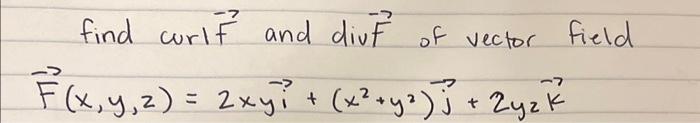 find curl F⃗ and div F⃗ of vector field
F⃗(x,y,z) = 2xy i⃗ + (x² + y²) j⃗ + 2yz k⃗